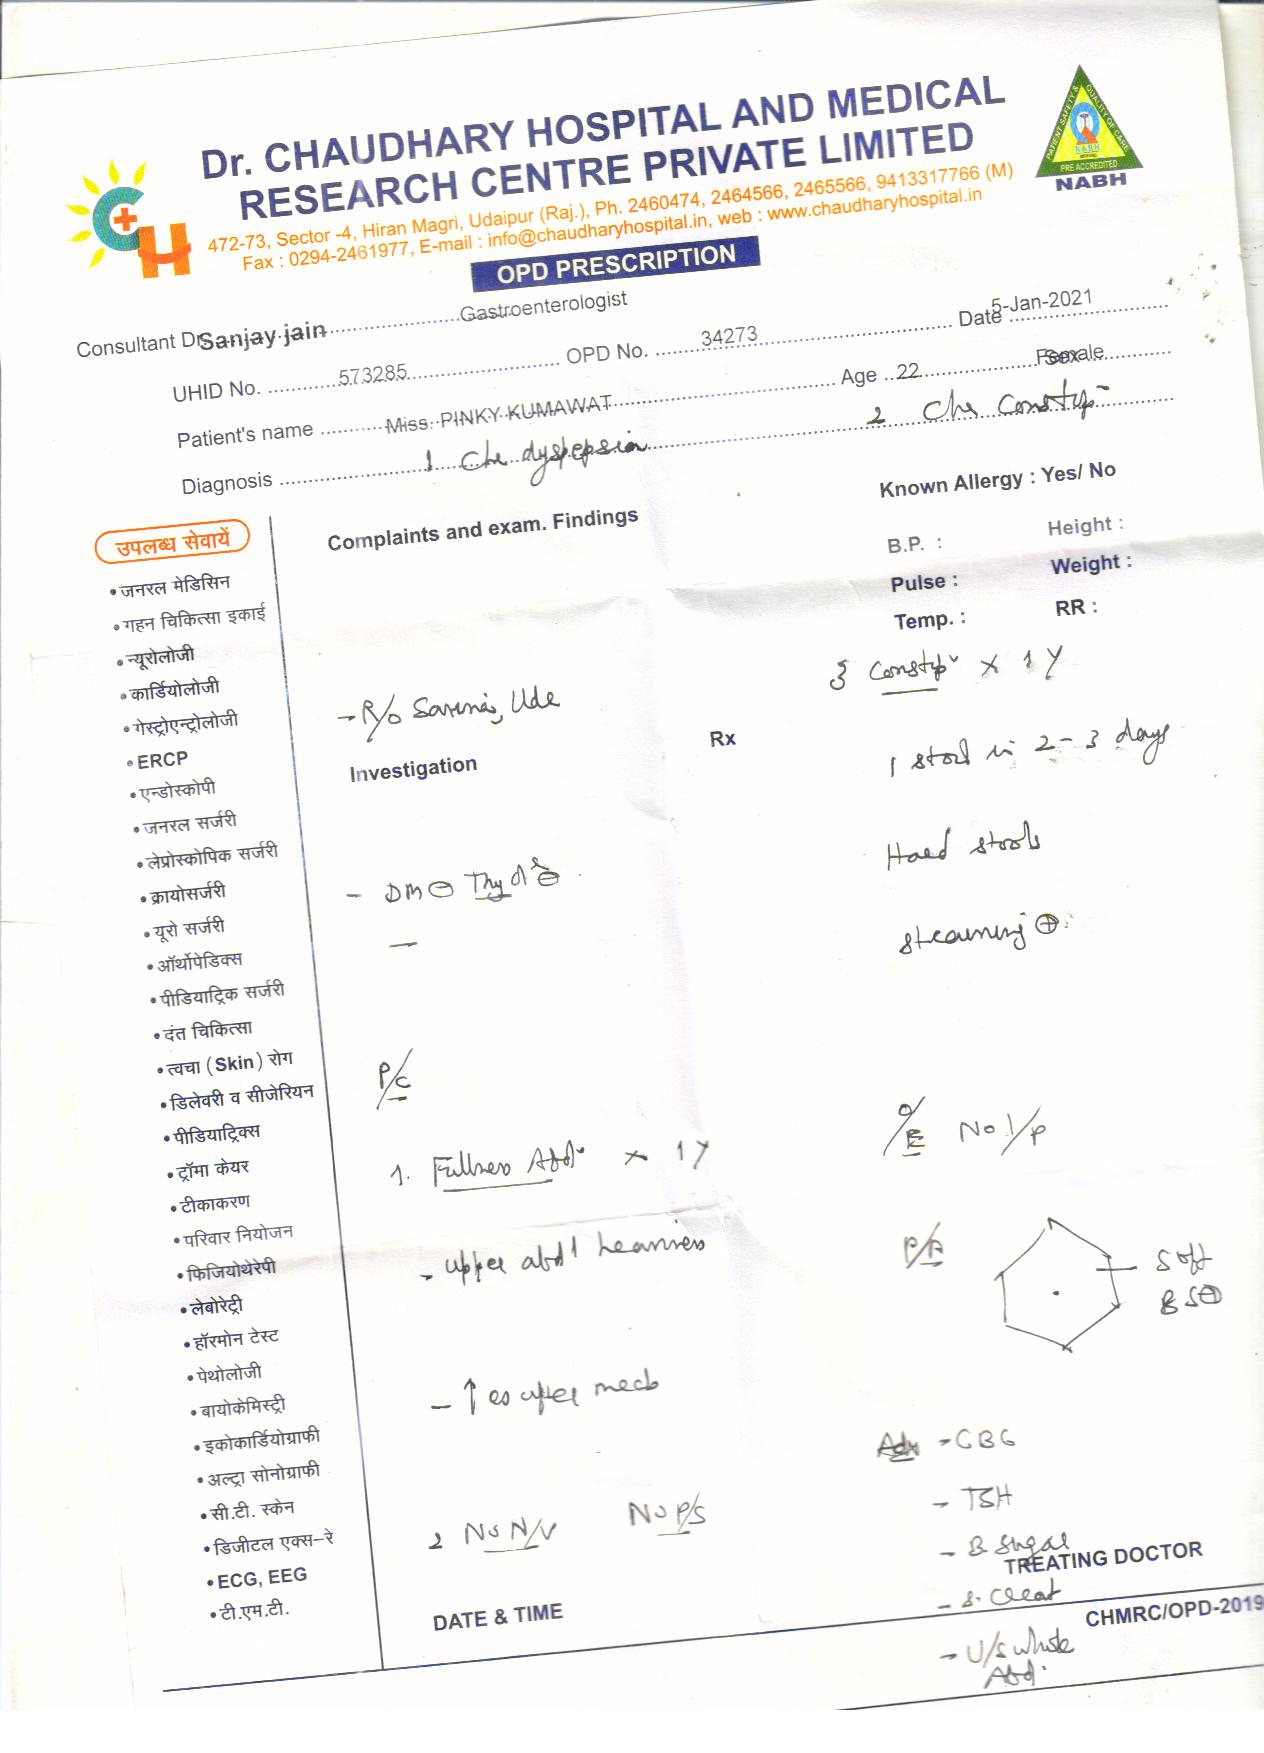 Dr. CHAUDHARY HOSPITAL AND MEDICAL
RESEARCH CENTRE PRIVATE LIMITED
472-73, Sector -4, Hiran Magri, Udaipur (Raj.), Ph. 2460474, 2464566, 2465566, 9413317766 (M)
Fax : 0294-2461977, E-mail : info@chaudharyhospital.in, web : www.chaudharyhospital.in
PATIENT SAFETY & QUALITY OF CARE
NABH
PRE ACCREDITED
NABH
OPD PRESCRIPTION
Consultant Dr. Sanjay jain Gastroenterologist
UHID No. 573285 OPD No. 34273 Date 5-Jan-2021
Patient's name Miss. PINKY KUMAWAT Age 22 Sex Female
Diagnosis 1 Chr dyspepsia 2 Chr Constipn
Known Allergy : Yes/ No
Complaints and exam. Findings
B.P. : Height :
Pulse : Weight :
Temp. : RR :
उपलब्ध सेवायें
•जनरल मेडिसिन
•गहन चिकित्सा इकाई
•न्यूरोलोजी
•कार्डियोलोजी
•गेस्ट्रोएन्ट्रोलोजी
•ERCP
•एन्डोस्कोपी
•जनरल सर्जरी
•लेप्रोस्कोपिक सर्जरी
•क्रायोसर्जरी
•यूरो सर्जरी
•ऑर्थोपेडिक्स
•पीडियाट्रिक सर्जरी
•दंत चिकित्सा
•त्वचा (Skin) रोग
•डिलेवरी व सीजेरियन
•पीडियाट्रिक्स
•ट्रॉमा केयर
•टीकाकरण
•परिवार नियोजन
•फिजियोथेरेपी
•लेबोरेट्री
•हॉरमोन टेस्ट
•पेथोलोजी
•बायोकेमिस्ट्री
•इकोकार्डियोग्राफी
•अल्ट्रा सोनोग्राफी
•सी.टी. स्केन
•डिजीटल एक्स-रे
•ECG, EEG
•टी.एम.टी.
- R/o Ude
Investigation
- DM ⊖ Thy ⊖
-
P/c
1. Fullness Abdn × 1 Y
- upper abdl heaviness
- ↑es after meals
2 No N/V No P/S
DATE & TIME
Rx
3 Constipn × 1 Y
1 stool in 2-3 days
Hard stools
straining ⊕
O/E No I/P
P/A Soft
BS⊕
Adv - CBC
- TSH
- B Sugar
TREATING DOCTOR
- S. Creat
CHMRC/OPD-2019
- U/S whole
Abd.